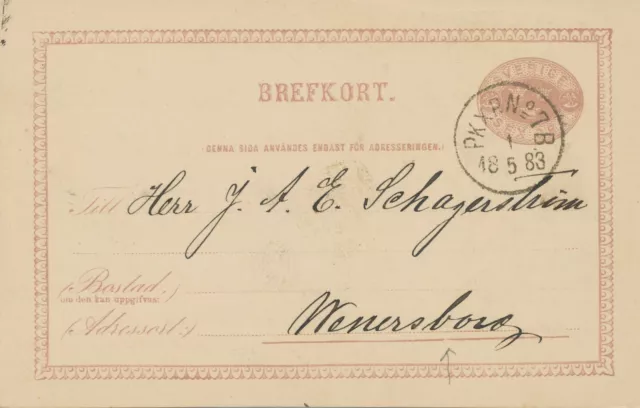 SVERIGE
BREFKORT.
PKXP. No 7 B.
1
18 5 83
DENNA SIDA ANVÄNDES ENDAST FÖR ADRESSERINGEN.
Till Herr J. A. E. Schagerström
(Bostad.
om den kan uppgifvas:)
(Adressort:) Wenersborg